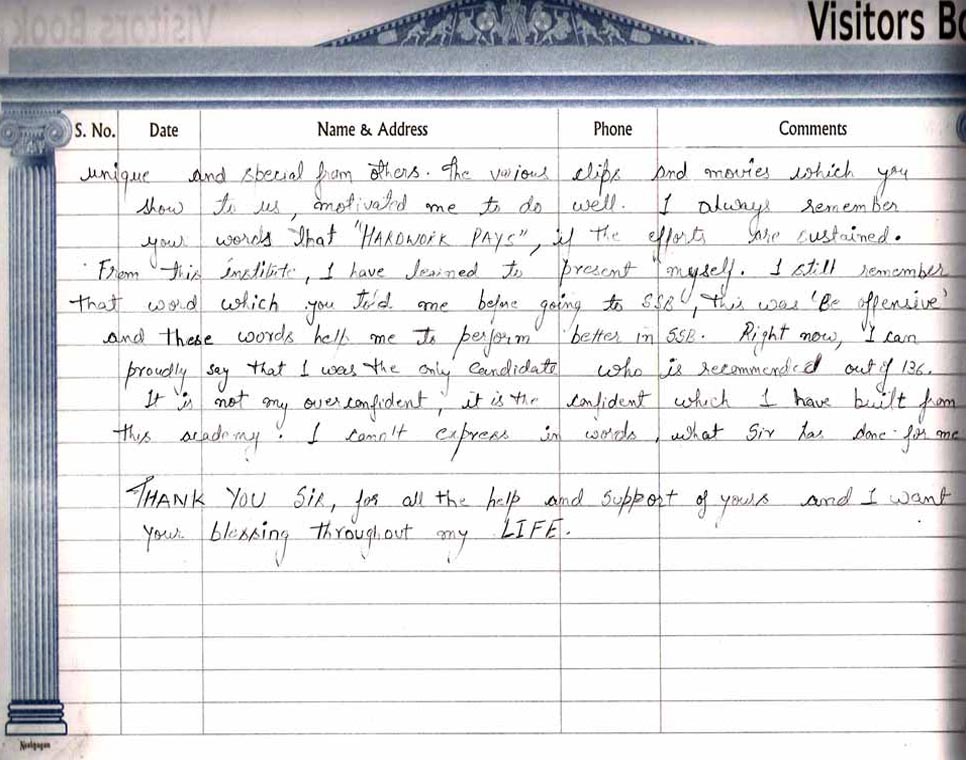 Visitors Bo
S. No. Date Name & Address Phone Comments
unique and special from others. The various clips and movies which you
show to us, motivated me to do well. I always remember
your words that "HARDWORK PAYS", if the efforts are sustained.
From this institute, I have learned to present myself. I still remember
that word which you told me before going to SSB, this was 'Be offensive'
and these words help me to perform better in SSB. Right now, I can
proudly say that I was the only candidate who is recommended out of 136.
It is not my overconfident, it is the confident which I have built from
this academy. I cann't express in words, what Sir has done for me
THANK YOU SIR, for all the help and support of yours and I want
your blessing throughout my LIFE.
Neelgagan